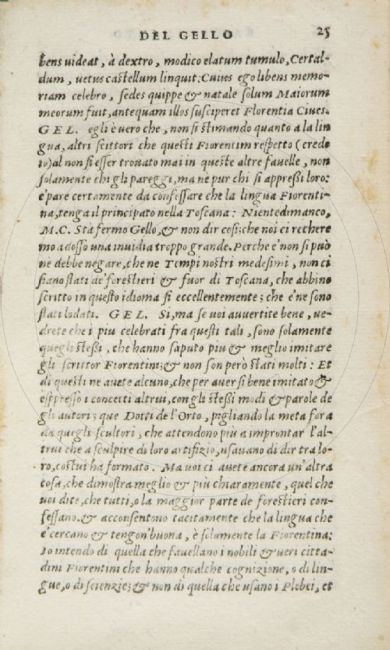 DEL GELLO 25
bens uideat, à dextro, modico elatum tumulo, Certal-
dum, uetus castellum linquit: Cuius ego libens memo-
riam celebro, sedes quippe & natale solum Maiorum
meorum fuit, antequam illos susciperet Florentia Ciues.
GEL. egli è uero che, non si stimando quanto a la lin
gua, altri scittori che questi Fiorentini respetto (credo
io) al non si esser trouato mai in queste altre fauelle, non
solamente chi gli pareggi, ma ne pur chi si appressi loro:
e pare certamente da confessare che la lingua Fiorenti-
na, tenga il principato nella Toscana: Nientedimanco,
M.C. Stà fermo Gello, & non dir cosi: che noi ci rechere
mo adosso una inuidia troppo grande. Perche è non si può
ne debbe negare, che ne Tempi nostri medesimi, non ci
siano stati de' forestieri & fuor di Toscana, che abbino
scritto in questo idioma si eccellentemente; che è ne sono
stati lodati. GEL. Si, ma se uoi auuertite bene, ue-
drete che i piu celebrati fra questi tali, sono solamente
quegli stessi, che hanno saputo piu & meglio imitare
gli scrittor Fiorentini; & non son però stati molti: Et
di questi ne auete alcuno, che per auer si bene imitato &
espresso i concetti altrui, con gli stessi modi & parole de
gli autori; que Dotti de l'Orto, pigliando la meta fora
da quegli scultori, che attendon piu a improntar l'al-
trui che a sculpire di loro artifizio, usauano di dir tra lo-
ro, costui ha formato. Ma uoi ci auete ancora un'altra
cosa, che dimostra meglio & piu chiaramente, quel che
uoi dite, che tutti, o la maggior parte de forestieri con-
fessano & acconsentono tacitamente che la lingua che
è cercano & tengon buona, è solamente la Fiorentina:
Io intendo di quella che fauellano i nobili & ueri citta-
dini Fiorentini che hanno qualche cognizione, o di lin-
gue, o di scienzie; & non di quella che usano i Plebei, et